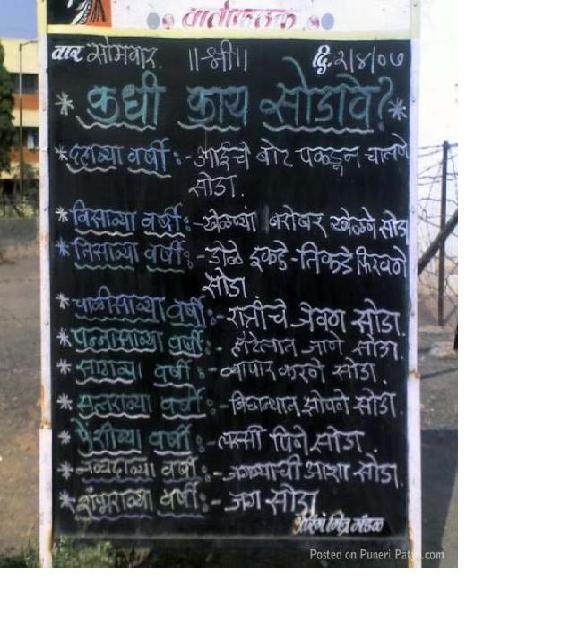 वार्ताफलक
वार सोमवार ॥श्री॥ दि. २/४/०७
* कधी काय सोडावे? *
* दहाव्या वर्षी :- आईचे बोट पकडून चालणे
सोडा.
* विसाव्या वर्षी :- खेळण्यां बरोबर खेळणे सोडा
* तिसाव्या वर्षी :- डोळे इकडे-तिकडे फिरवणे
सोडा
* चाळीसाव्या वर्षी :- रात्रीचे जेवण सोडा.
* पन्नासाव्या वर्षी :- हॉटेलात जाणे सोडा.
* साठाव्या वर्षी :- व्यापार करणे सोडा.
* सत्तराव्या वर्षी :- बिछान्यात झोपणे सोडा.
* ऐंशीव्या वर्षी :- लस्सी पिणे सोडा.
* नव्वदाव्या वर्षी :- जगण्याची आशा सोडा.
* शंभराव्या वर्षी :- जग सोडा
मित्र मंडळ
Posted on Puneri Pati.com